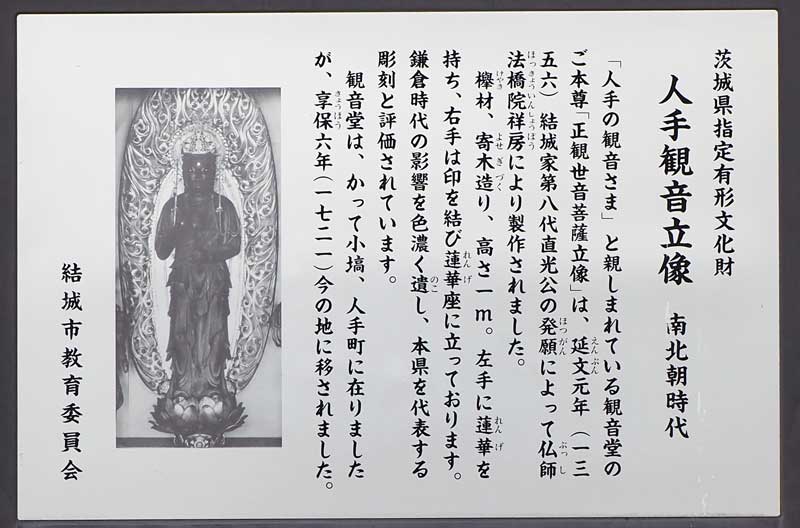 茨城県指定有形文化財
人手観音立像 南北朝時代
「人手の観音さま」と親しまれている観音堂の
ご本尊「正観世音菩薩立像」は、延文元年（一三
五六）結城家第八代直光公の発願によって仏師
法橋院祥房により製作されました。
欅材、寄木造り、高さ一ｍ。左手に蓮華を
持ち、右手は印を結び蓮華座に立っております。
鎌倉時代の影響を色濃く遺し、本県を代表する
彫刻と評価されています。
観音堂は、かって小塙、人手町に在りました
が、享保六年（一七二一）今の地に移されました。
結城市教育委員会